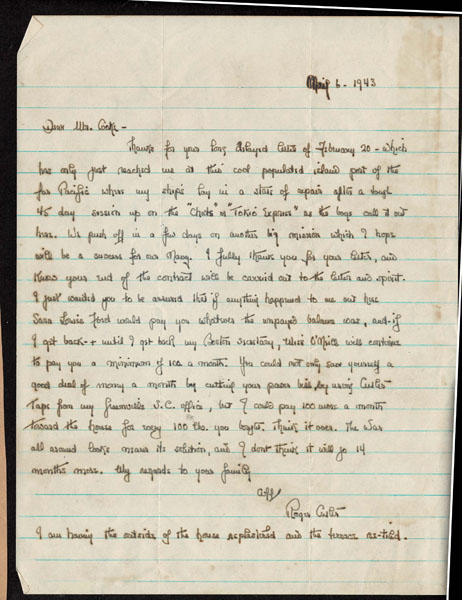 April 6 - 1943
Dear Mr. Cocke -
Thanks for your long delayed letter of February 20 - which
has only just reached me at this cool populated island port of the
far Pacific where my ship lay in a state of repair after a tough
45 day session up on the "Chute" or "Tokio Express" as the boys call it out
here. We push off in a few days on another big mission which I hope
will be a success for our Navy. I fully thank you for your letter, and
know your end of the contract will be carried out to the letter and spirit.
I just wanted you to be assured that if anything happened to me out here
Sara Louise Ford would pay you whatever the unpaid balance was, and - if
I get back - + until I get back my Boston Secretary, Alice O'Neill will continue
to pay you a minimum of 100 a month. You could not only save yourself a
good deal of money a month by cutting your paper bills by using Cutler
Tape from my Greenville S.C. office, but I could pay 100 more a month
toward the house for every 100 lbs. you bought. Think it over. The War
all around looks nears its solution, and I dont think it will go 14
months more. My regards to your family
Aff/
Roger Cutler
I am having the outside of the house replastered and the terrace re-tiled.